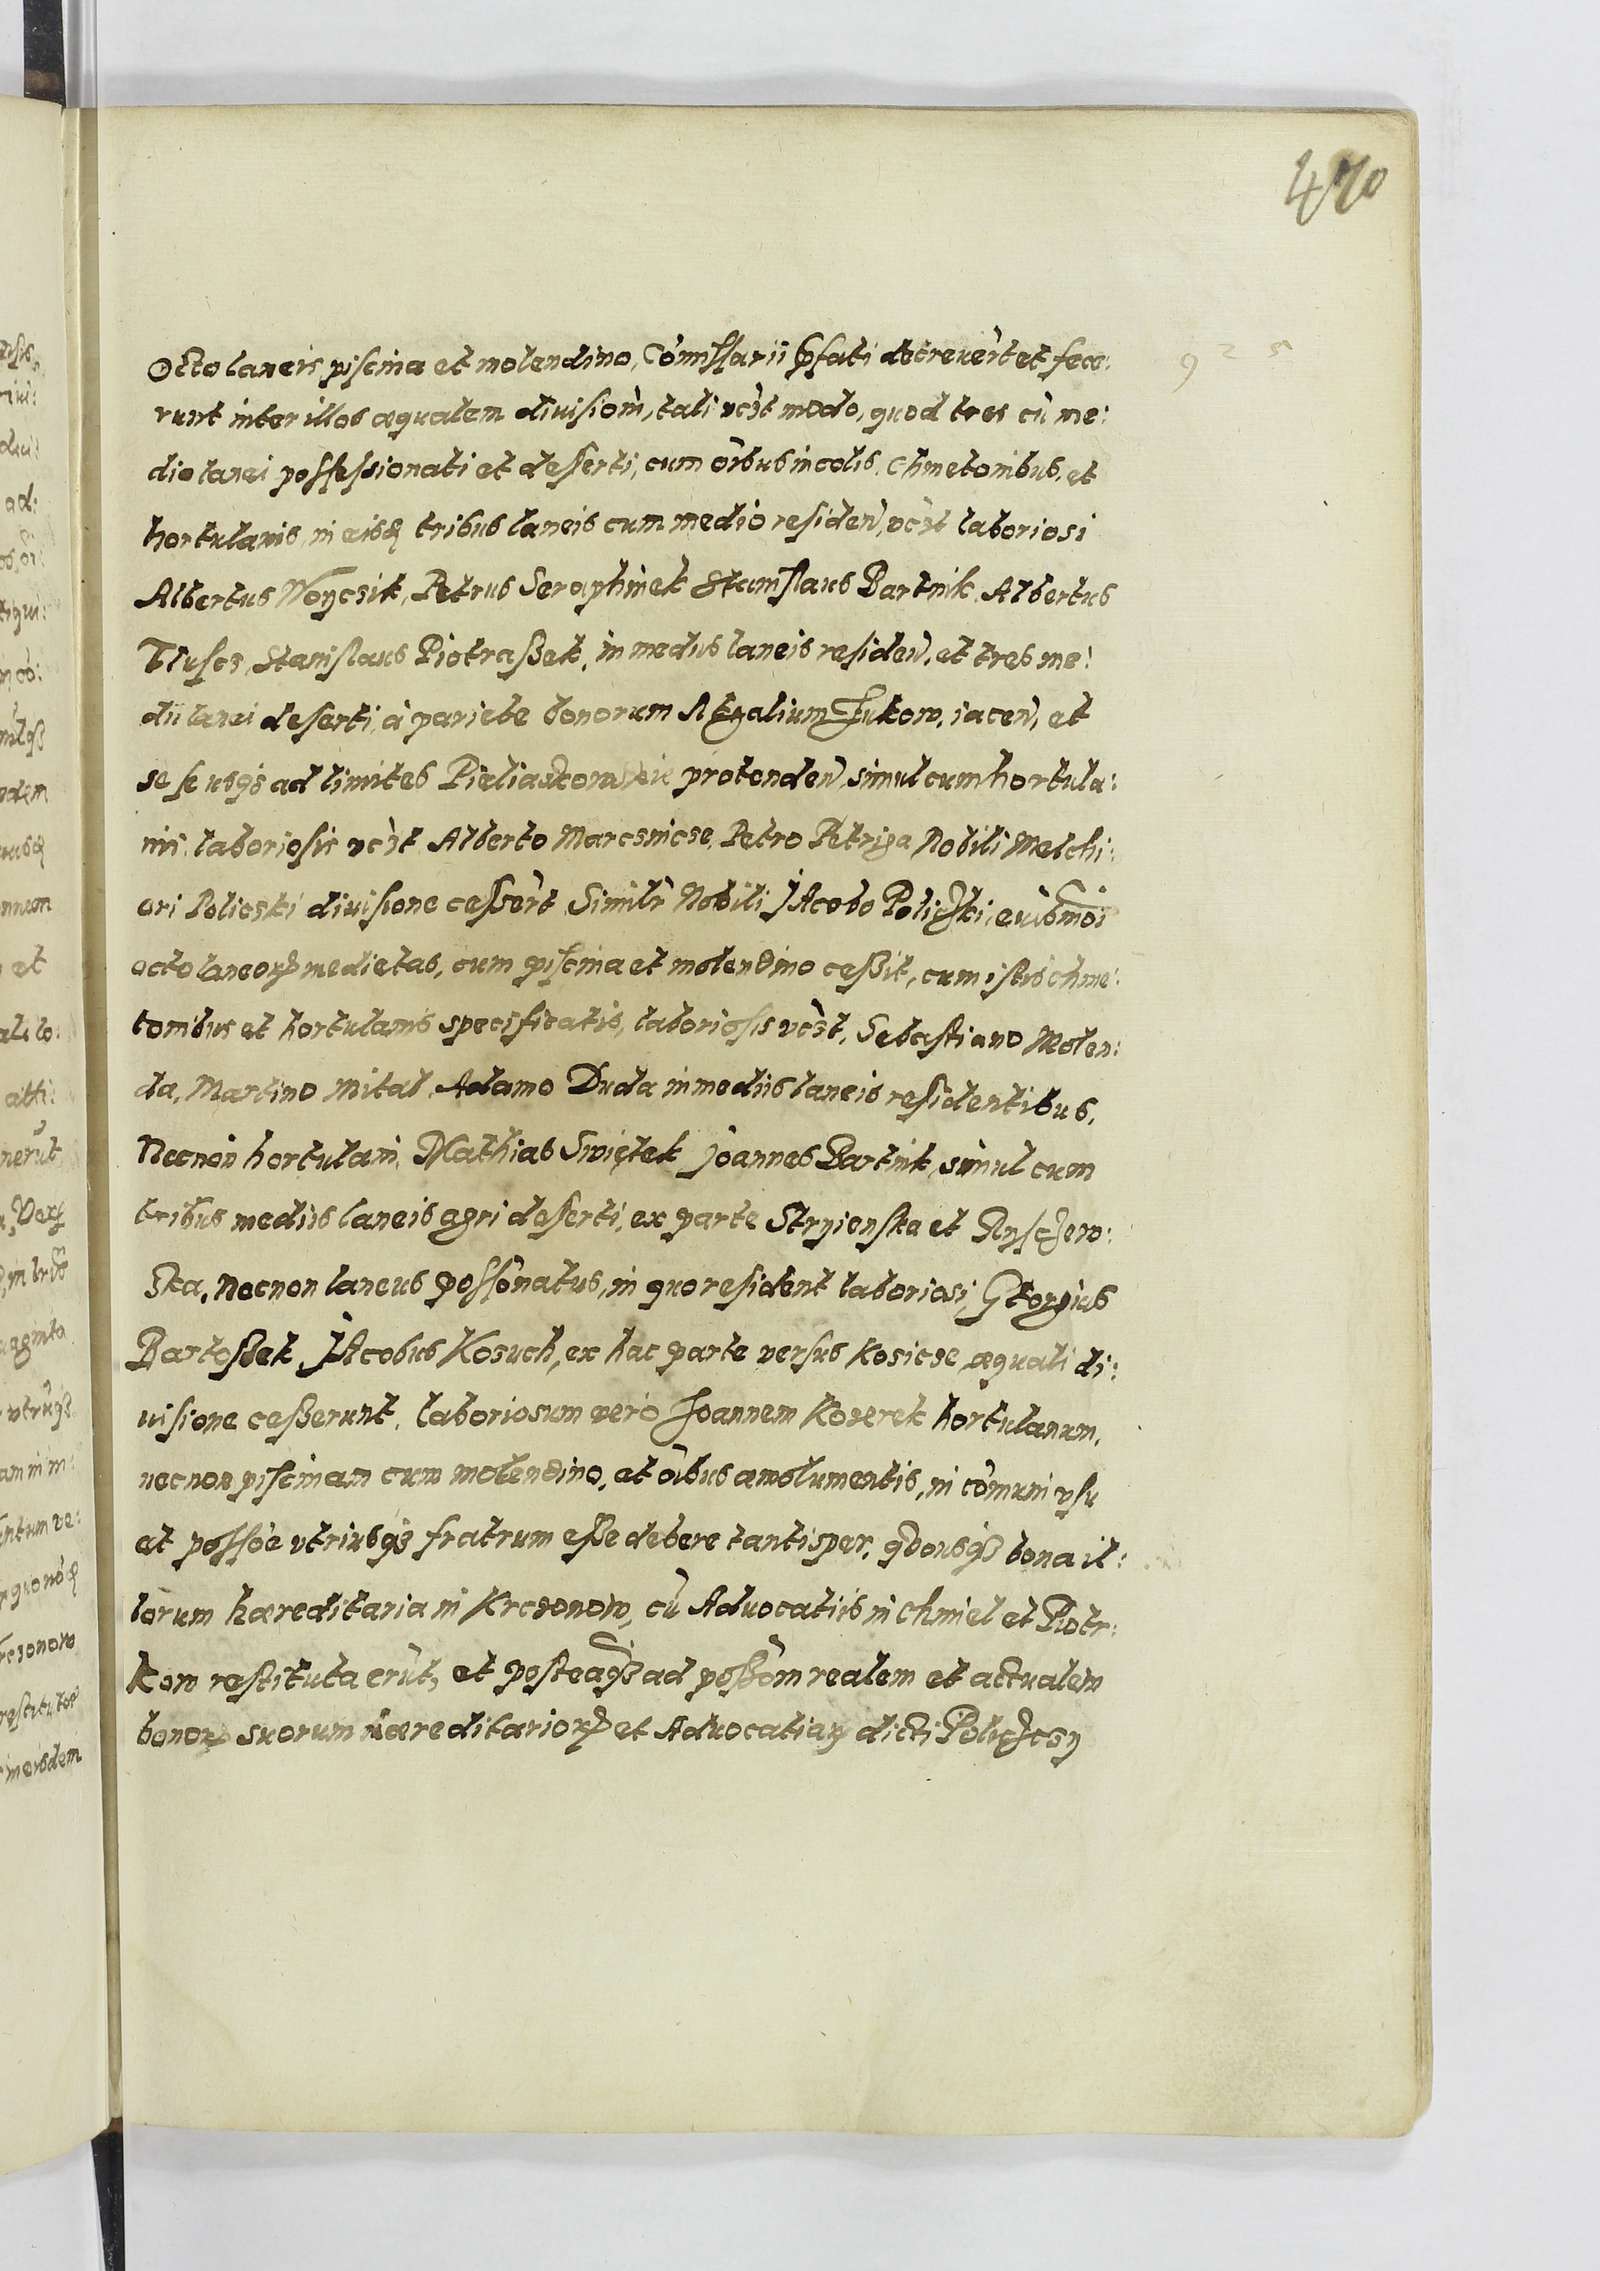 470
925
Octo laneis piscina et molendino, Com̃issarii p̱fati decreuer̀t et fece:
runt inter illos æqualem diuisiom̀, tali vc̀zt modo, quod tres cù me:
dio lanei possessionati et deserti, cum oìbus incolis, Chmetonibus, et
hortulanis, in eisd tribus laneis cum medio residen̄, vc̀zt laboriosi
Albertus Woycsik, Petrus Seraphinek Stanislaus Bartnik Albertus
Tluscs, Stanislaus Piotraßek, in mediis laneis residen̄, et tres me:
dii lanei deserti, à pariete bonorum Regalium Żukow, iacen̄, et
se se usq̨s ad limites protenden̄ simul cum hortula:
nis, laboriosis vc̀zt Alberto Marcsnicse, Petro Petryga Nobili Melchi:
ori Policski diuisione cesser̀t Simil̀r Nobili Jacobo Policzki, euismoi
octo laneoꝝ medietas, cum piscina et molendino ceßit, cum istis chme:
tonibus et hortulanis specificatis, laboriosis vc̀zt, Sebastiano Molen:
da, Martino Mital Adamo Duda in mediis laneis residentibus,
Necnon hortulani, Mathias Swiętek Joannes Bartnik, simul cum
tribus mediis laneis agri deserti, ex parte Stryienska et
ska, Necnon laneus poss̀onatus, in quo resident laboriosi, Georgius
Bartoßek Jacobus Kosuch, ex hac parte versus Kosicse, æquali di:
uisione ceßerunt, laboriosum verò Joannem Kozerek hortulanum,
necnon piscinam cum molendino, et oìbus æmolumentis, in còmuni vsu
et possòe vtriusq̨s fratrum eße debere tantisper, qdousq̨s bona il:
lorum hæreditaria in Krcsonow, cù Aduocatiis in Chmiel et Piotr:
kow restituta erùt, et posteaq̨s ad poßòm realem et actualem
bonoꝝ suorum hæreditarioꝝ et Aduocatiaꝝ dicti Policzcsy